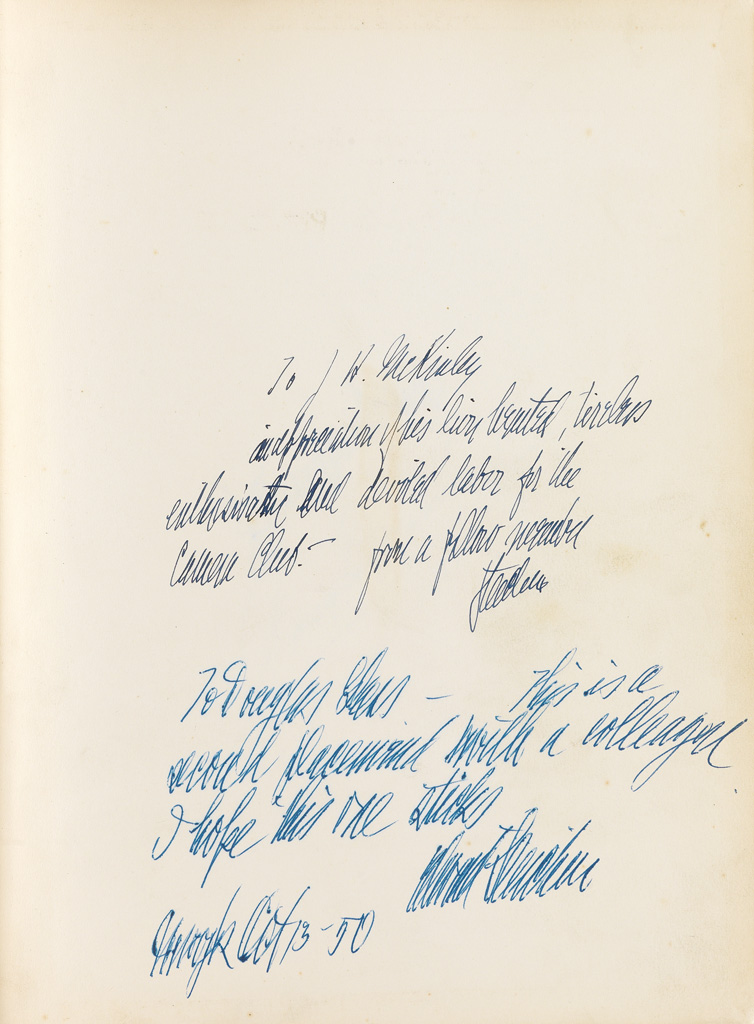 To J H. McKinley
in appreciation of his lion hearted, tireless
enthusiastic and devoted labor for the
Camera Club. — from a fellow member
Steichen
To Douglas Glass — This is a
second placement with a colleague
I hope this one sticks
Edward Steichen
Oct 13 - 50